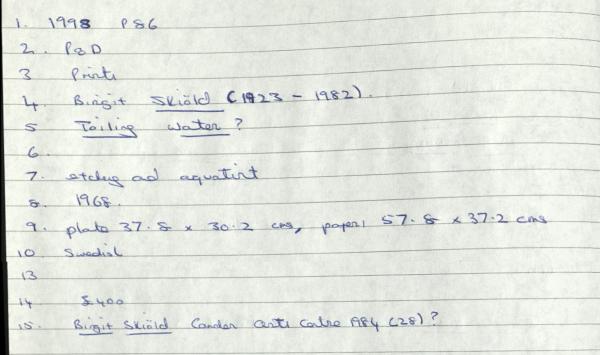 1. 1998 P86
2. P&D
3 Prints
4. Birgit Skiöld (1923 - 1982).
5 Tailing Water?
6.
7. etching ad aquatint
8. 1968.
9. plate 37.8 x 30.2 cms, paper: 57.8 x 37.2 cms
10. Swedish
13
14 £400
15. Birgit Skiöld Camden Arts Centre 1984 (28)?